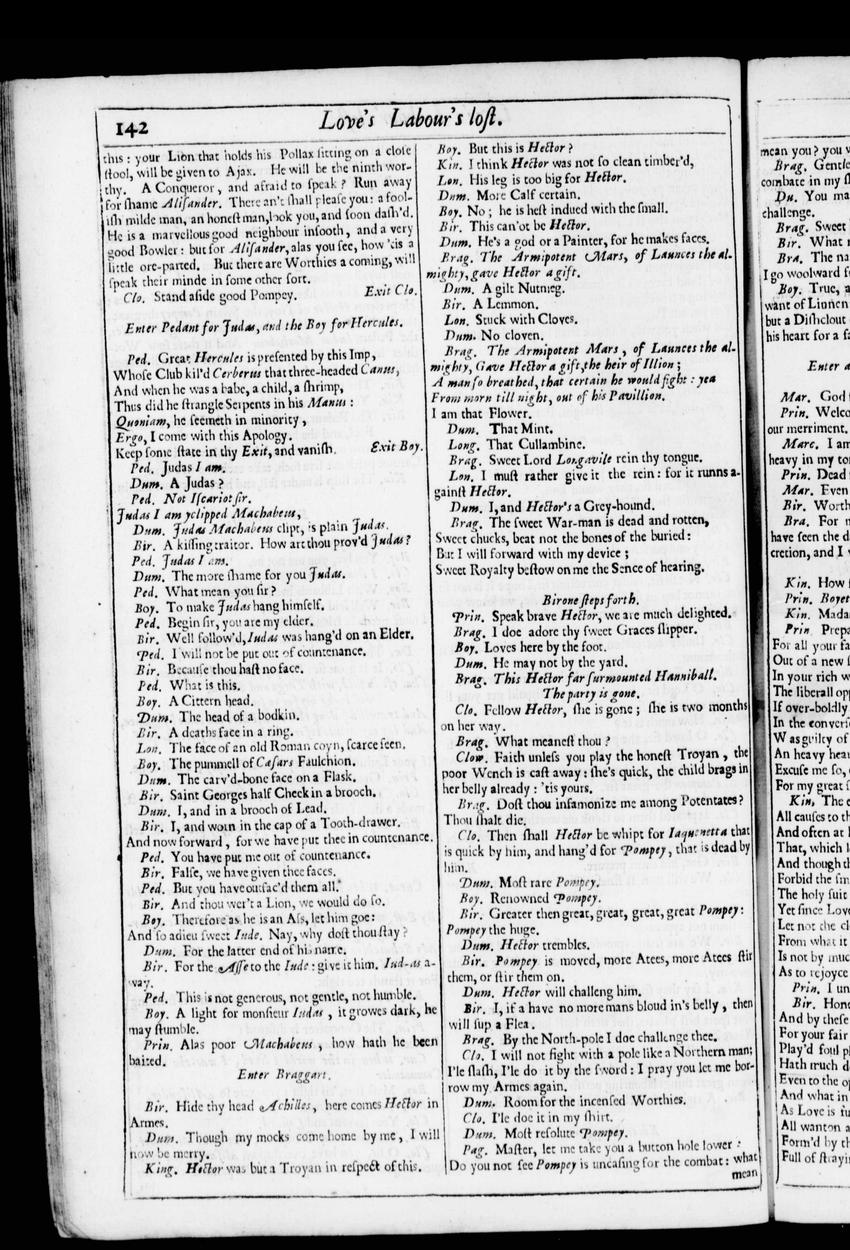 142
Love's Labour's lost.
this: your Lion that holds his Pollax sitting on a close
stool, will be given to Ajax. He will be the ninth wor-
thy. A Conqueror, and afraid to speak? Run away
for shame Alisander. There an't shall please you: a fool-
ish milde man, an honest man, look you, and soon dash'd.
He is a marvellous good neighbour insooth, and a very
good Bowler: but for Alisander, alas you see, how 'tis a
little ore-parted. But there are Worthies a coming, will
speak their minde in some other sort.
Clo. Stand aside good Pompey. Exit Clo.
Enter Pedant for Judas, and the Boy for Hercules.
Ped. Great Hercules is presented by this Imp,
Whose Club kil'd Cerberus that three-headed Canus,
And when he was a babe, a child, a shrimp,
Thus did he strangle Serpents in his Manus:
Quoniam, he seemeth in minority,
Ergo, I come with this Apology.
Keep some state in thy Exit, and vanish. Exit Boy.
Ped. Judas I am.
Dum. A Judas?
Ped. Not Iscariot sir.
Judas I am yclipped Machabeus,
Dum. Judas Machabeus clipt, is plain Judas.
Bir. A kissing traitor. How art thou prov'd Judas?
Ped. Judas I am.
Dum. The more shame for you Judas.
Ped. What mean you sir?
Boy. To make Judas hang himself.
Ped. Begin sir, you are my elder.
Bir. Well follow'd, Iudas was hang'd on an Elder.
Ped. I will not be put out of countenance.
Bir. Because thou hast no face.
Ped. What is this.
Boy. A Cittern head.
Dum. The head of a bodkin.
Bir. A deaths face in a ring.
Lon. The face of an old Roman coyn, scarce seen.
Boy. The pummell of Cæsars Faulchion.
Dum. The carv'd-bone face on a Flask.
Bir. Saint Georges half Check in a brooch.
Dum. I, and in a brooch of Lead.
Bir. I, and worn in the cap of a Tooth-drawer.
And now forward, for we have put thee in countenance.
Ped. You have put me out of countenance.
Bir. False, we have given thee faces.
Ped. But you have outfac'd them all.
Bir. And thou wer't a Lion, we would do so.
Boy. Therefore as he is an Ass, let him goe:
And so adieu sweet Iude. Nay, why dost thou stay?
Dum. For the latter end of his name.
Bir. For the Asse to the Iude: give it him. Iud-as a-
way.
Ped. This is not generous, not gentle, not humble.
Boy. A light for monsieur Iudas, it growes dark, he
may stumble.
Prin. Alas poor Machabeus, how hath he been
baited.
Enter Braggart.
Bir. Hide thy head Achilles, here comes Hector in
Armes.
Dum. Though my mocks come home by me, I will
now be merry.
King. Hector was but a Troyan in respect of this.
Boy. But this is Hector?
Kin. I think Hector was not so clean timber'd,
Lon. His leg is too big for Hector.
Dum. More Calf certain.
Boy. No; he is best indued with the small.
Bir. This can'ot be Hector.
Dum. He's a god or a Painter, for he makes faces.
Brag. The Armipotent Mars, of Launces the al-
mighty, gave Hector a gift.
Dum. A gilt Nutmeg.
Bir. A Lemmon.
Lon. Stuck with Cloves.
Dum. No cloven.
Brag. The Armipotent Mars, of Launces the al-
mighty, Gave Hector a gift, the heir of Illion;
A man so breathed, that certain he would fight: yea
From morn till night, out of his Pavillion.
I am that Flower.
Dum. That Mint.
Long. That Cullambine.
Brag. Sweet Lord Longavile rein thy tongue.
Lon. I must rather give it the rein: for it runns a-
gainst Hector.
Dum. I, and Hector's a Grey-hound.
Brag. The sweet War-man is dead and rotten,
Sweet chucks, beat not the bones of the buried:
But I will forward with my device;
Sweet Royalty bestow on me the Sence of hearing.
Birone steps forth.
Prin. Speak brave Hector, we are much delighted.
Brag. I doe adore thy sweet Graces slipper.
Boy. Loves here by the foot.
Dum. He may not by the yard.
Brag. This Hector far surmounted Hanniball.
The party is gone.
Clo. Fellow Hector, she is gone; she is two months
on her way.
Brag. What meanest thou?
Clow. Faith unless you play the honest Troyan, the
poor Wench is cast away: she's quick, the child brags in
her belly already: 'tis yours.
Brag. Dost thou infamonize me among Potentates?
Thou shalt die.
Clo. Then shall Hector be whipt for Iaquenetta that
is quick by him, and hang'd for Pompey, that is dead by
him.
Dum. Most rare Pompey.
Boy. Renowned Pompey.
Bir. Greater then great, great, great, great Pompey:
Pompey the huge.
Dum. Hector trembles.
Bir. Pompey is moved, more Atees, more Atees stir
them, or stir them on.
Dum. Hector will challeng him.
Bir. I, if a have no more mans bloud in's belly, then
will sup a Flea.
Brag. By the North-pole I doe challenge thee.
Clo. I will not fight with a pole like a Northern man;
I'le slash, I'le do it by the sword: I pray you let me bor-
row my Armes again.
Dum. Room for the incensed Worthies.
Clo. I'le doe it in my shirt.
Dum. Most resolute Pompey.
Pag. Master, let me take you a button hole lower:
Do you not see Pompey is uncasing for the combat: what
mean
mean you? you w
Brag. Gentle
combate in my s
Du. You ma
challenge.
Brag. Sweet
Bir. What r
Bra. The na
I go woolward f
Boy. True, a
want of Linnen
but a Dishclout
his heart for a fa
Enter a
Mar. God
Prin. Welco
our merriment.
Marc. I am
heavy in my to
Prin. Dead
Mar. Even
Bir. Worth
Bra. For m
have seen the d
cretion, and I w
Kin. How
Prin. Boyet
Kin. Mada
Prin. Prepa
For all your fa
Out of a new s
In your rich w
The liberall opp
If over-boldly
In the convers
Was guilty of
An heavy hea
Excuse me so,
For my great s
Kin, The e
All causes to th
And often at
That, which l
And though th
Forbid the smi
The holy suit
Yet since Love
Let not the cl
From what it
Is not by muc
As to rejoyce
Prin. I un
Bir. Hone
And by these
For your fair
Play'd foul pl
Hath much d
Even to the op
And what in
As Love is fu
All wanton a
Form'd by th
Full of stayin